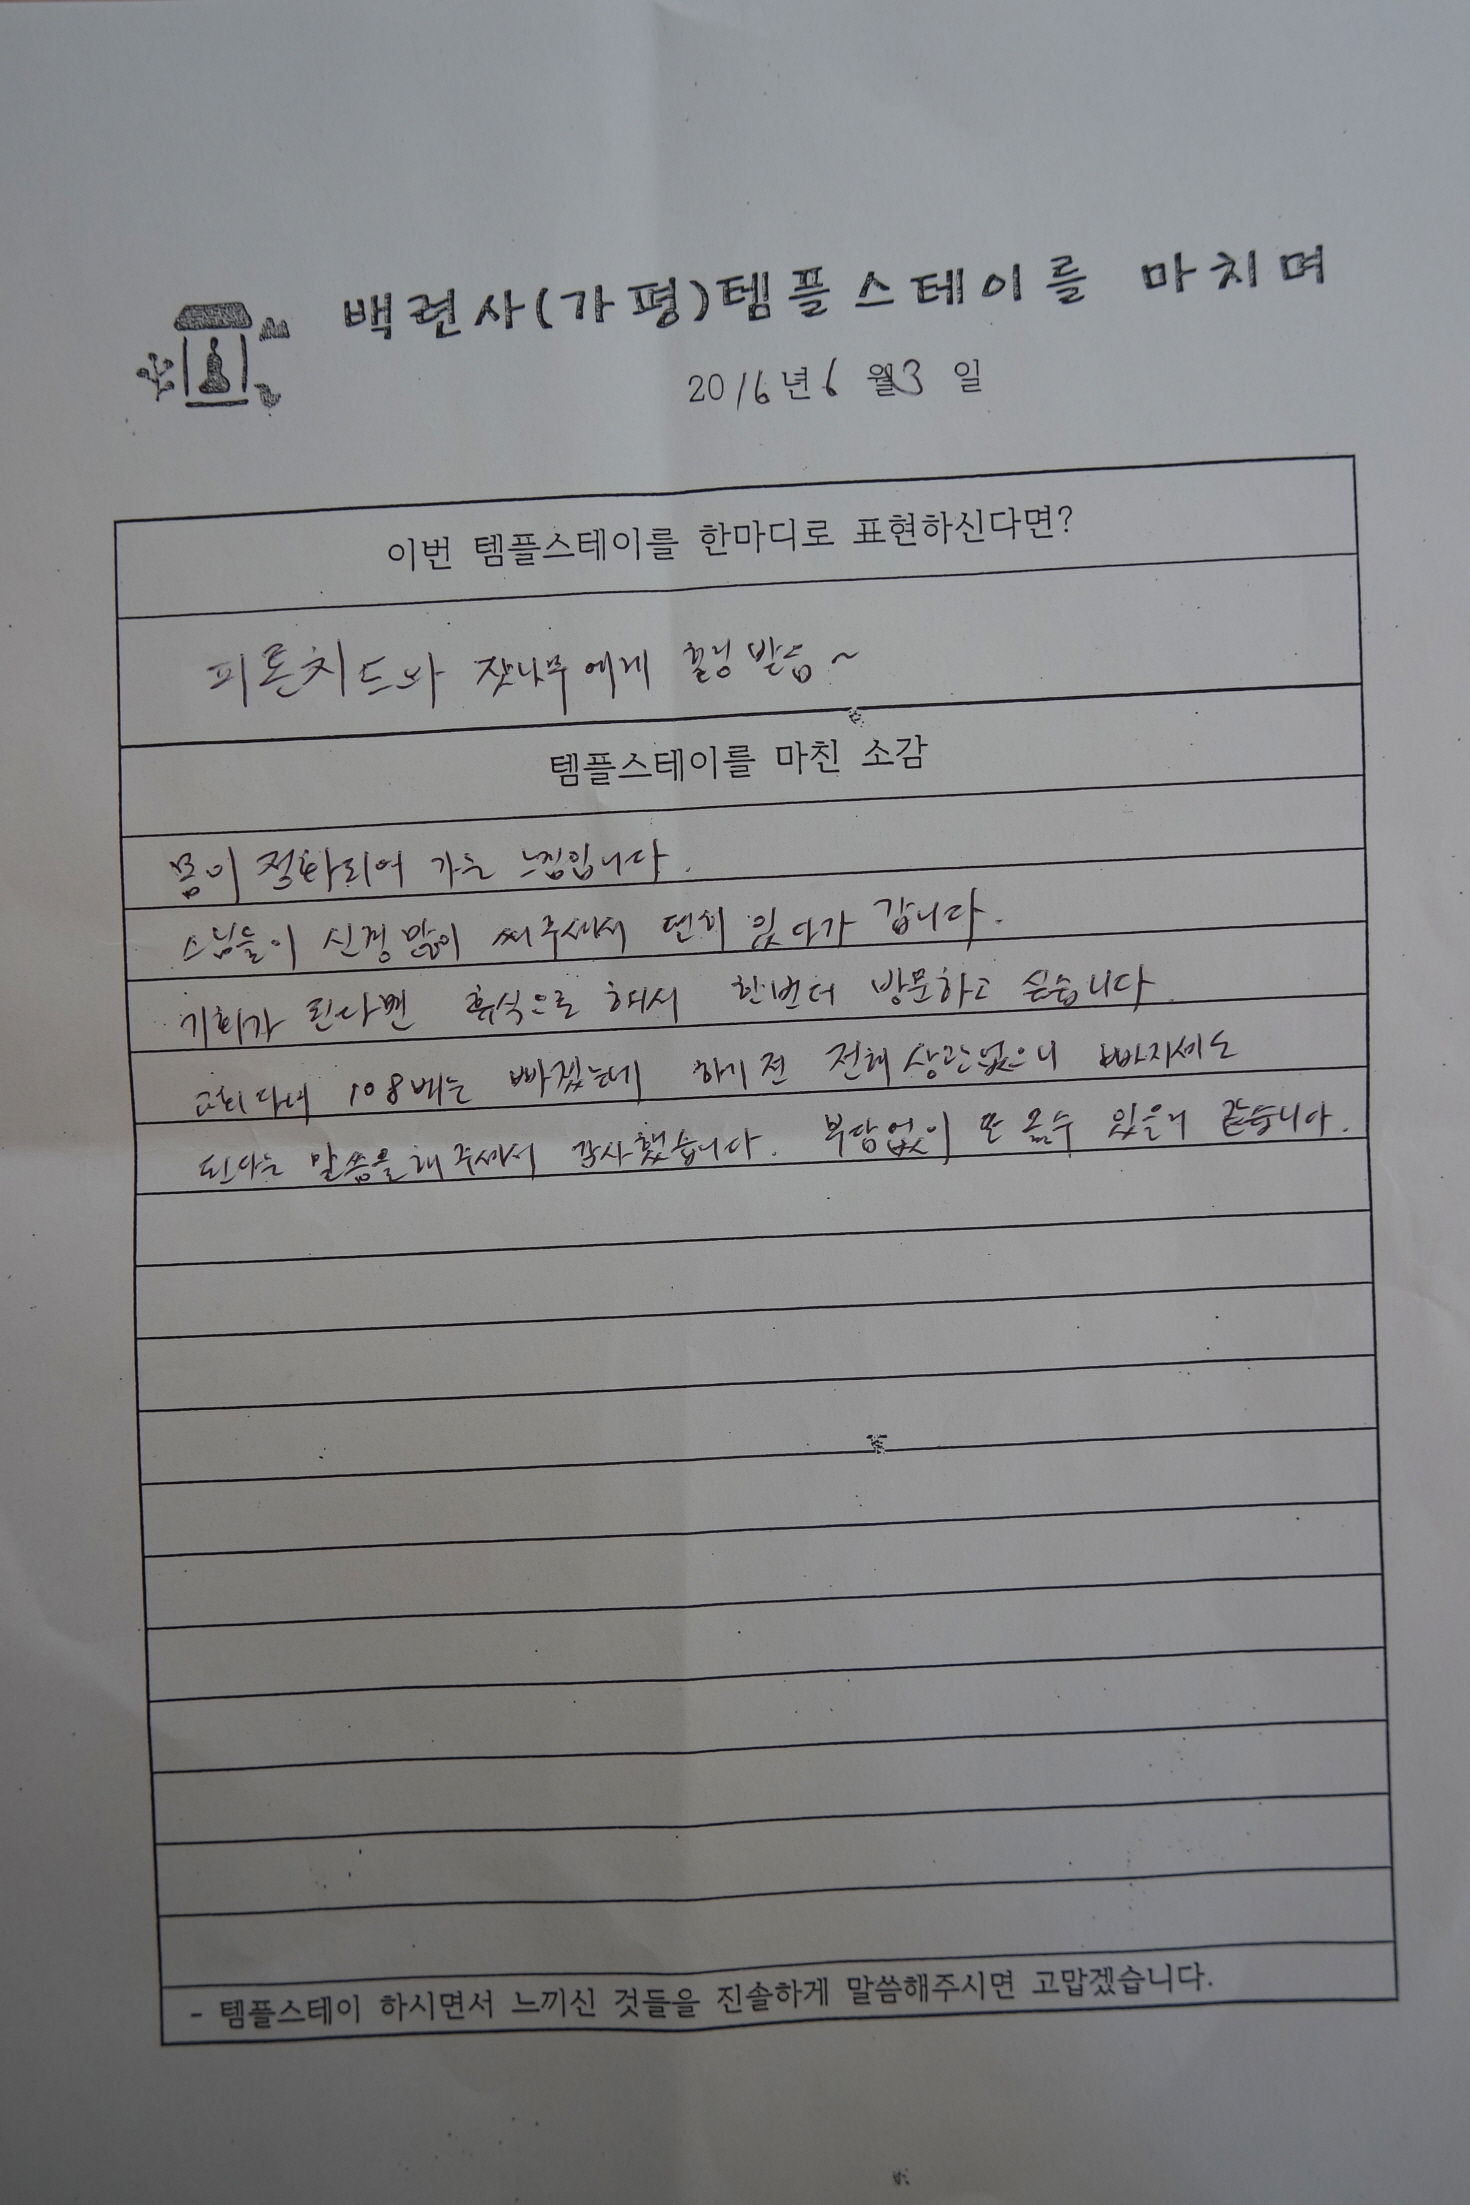 백련사(가평)템플스테이를 마치며
2016년 6월 3일
이번 템플스테이를 한마디로 표현하신다면?
피톤치드와 잣나무에게 힐링 받음~
템플스테이를 마친 소감
몸이 정화되어 가는 느낌입니다.
스님들이 신경 많이 써주셔서 편히 있다가 갑니다.
기회가 된다면 휴식으로 해서 한번더 방문하고 싶습니다.
교회다녀 108배는 빠졌는데 하기전 전혀 상관없으니 빠지셔도
된다는 말씀을 해주셔서 감사했습니다. 부담없이 또 올수 있을거 같습니다.
- 템플스테이 하시면서 느끼신 것들을 진솔하게 말씀해주시면 고맙겠습니다.